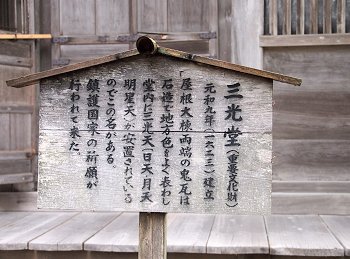 三光堂（重要文化財）
元和九年（一六二三）建立
「屋根大棟両端の鬼瓦は
石造で地方色をよく表わし
堂内に三光天（日天月天
明星天）が安置されている
のでこの名がある。
鎮護国家の祈願が
行われて来た。